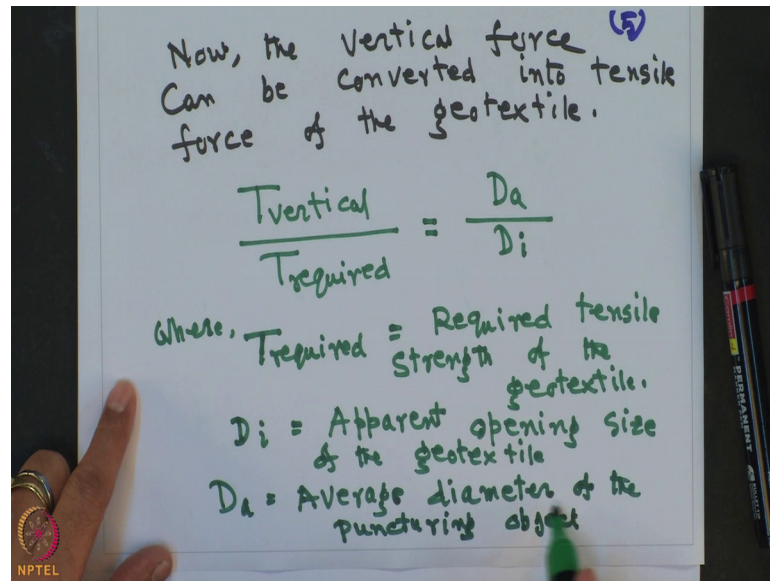 (5)
Now, the vertical force
Can be converted into tensile
force of the geotextile.
Tvertical / Trequired = Da / Di
Where, Trequired = Required tensile
strength of the
geotextile.
Di = Apparent opening size
of the geotextile
Da = Average diameter of the
puncturing object
PERMANENT
NPTEL